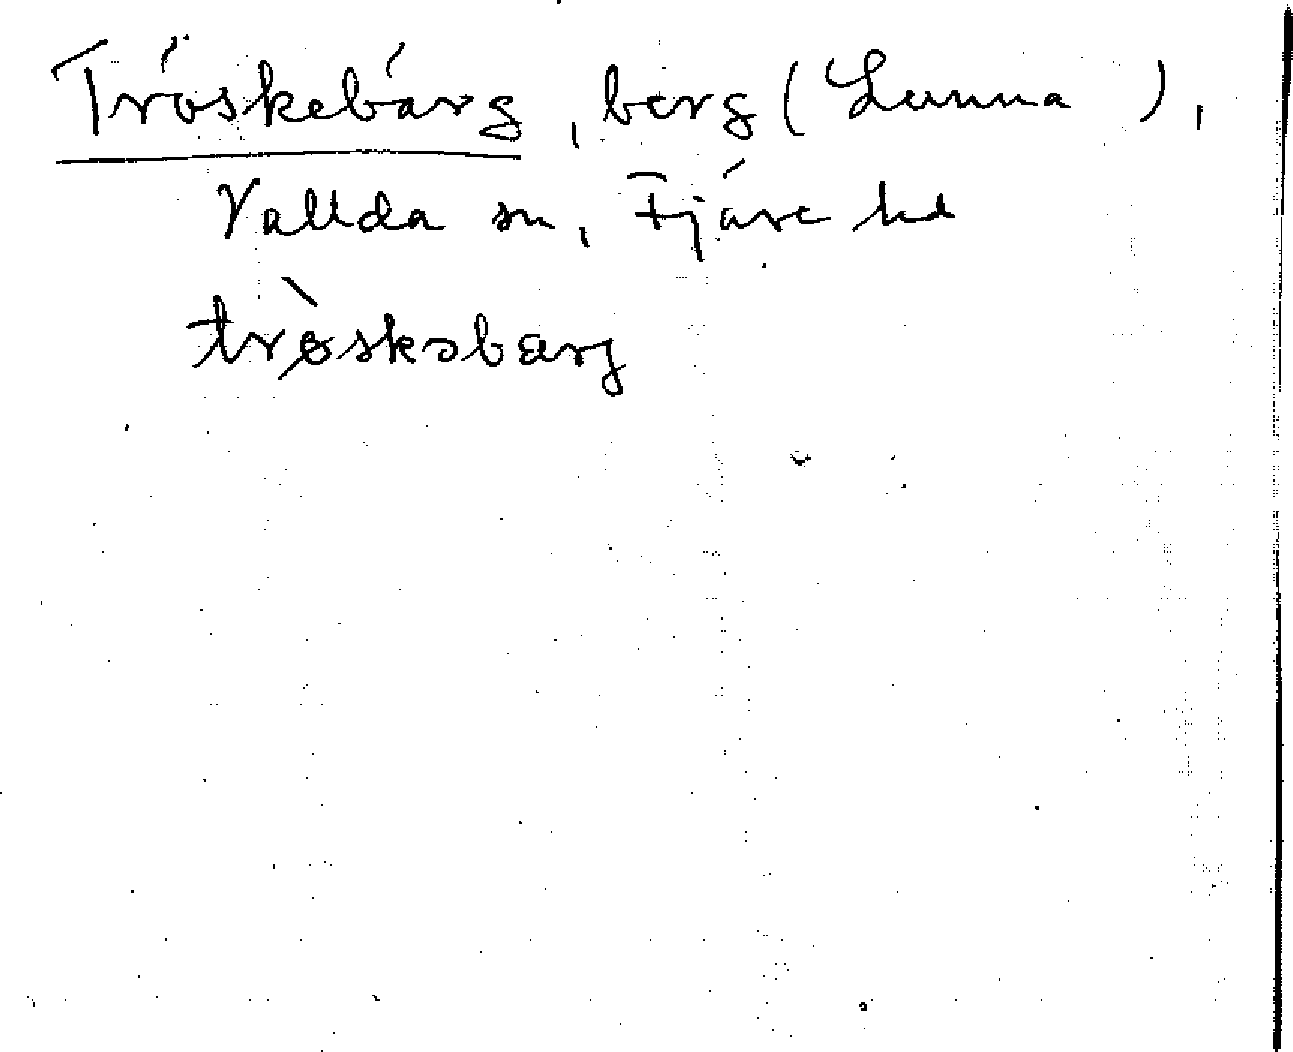 Tröskebärg, berg (Lunna ),
Vallda sn, Fjäre hd
trø̀skəbærg